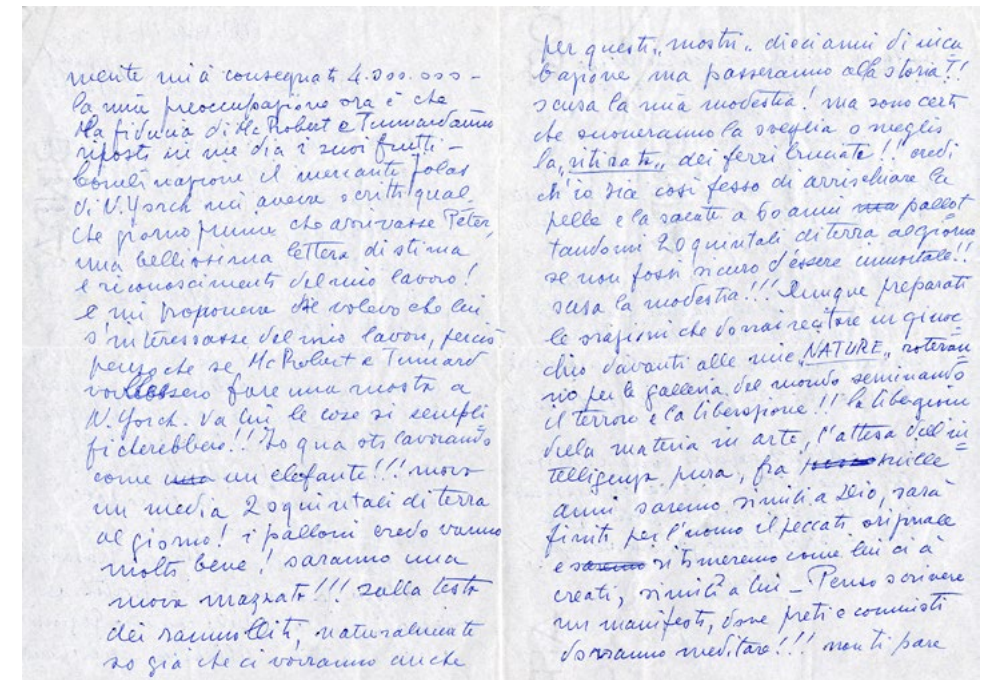 mente mi à consegnati 4.000.000 –
la mia preoccupazione ora è che
la fiducia di Mc Robert e Tunnard anno
riposti in me dia i suoi frutti –
Combinazione il mercante Jolas
di N. Yorch mi aveva scritti qual
che giorno prima che arrivasse Peter,
una bellissima lettera di stima
e riconoscimenti del mio lavoro!
e mi proponeva se volevo che lui
s'interessasse del mio lavoro, perciò
penso che se Mc Robert e Tunnard
volessero fare una mostra a
N. Yorch. da lui le cose si sempli
ficherebbero!! Io qua sto lavorando
come un elefante!!! movo
in media 20 quintali di terra
al giorno! i palloni credo vanno
molto bene! saranno una
nova mazzata!!! sulla testa
dei rammolliti, naturalmente
so già che ci vorranno anche
per questi „mostri„ dieci anni di incu
bazione ma passeranno alla storia!!
scusa la mia modestia! ma sono certi
che suoneranno la sveglia o meglio
la „ritirata„ dei ferri bruciati!! credi
ch'io sia così fesso di arrischiare la
pelle e la salute a 60 anni pallot
tandomi 20 quintali di terra al giorno
se non fossi sicuro d'essere immortale!!
scusa la modestia!!! Dunque preparati
le orazioni che dovrai recitare in ginoc
chio davanti alle mie „NATURE„ roteran
no per le gallerie del mondo seminando
il terrore e la liberazione!! la libegioni
della materia in arte, l'attesa dell'in
telligenza pura, fra mille
anni saremo simili a Dio, sarà
finiti per l'uomo il peccati originale
e ritorneremo come lui ci à
creati, simili a lui – Penso scrivere
un manifesti, dove preti e comunisti
dovranno meditare!!! non ti pare